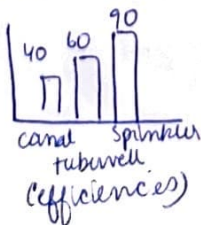 40 60 90
canal sprinkler
tubewell
(efficiences)